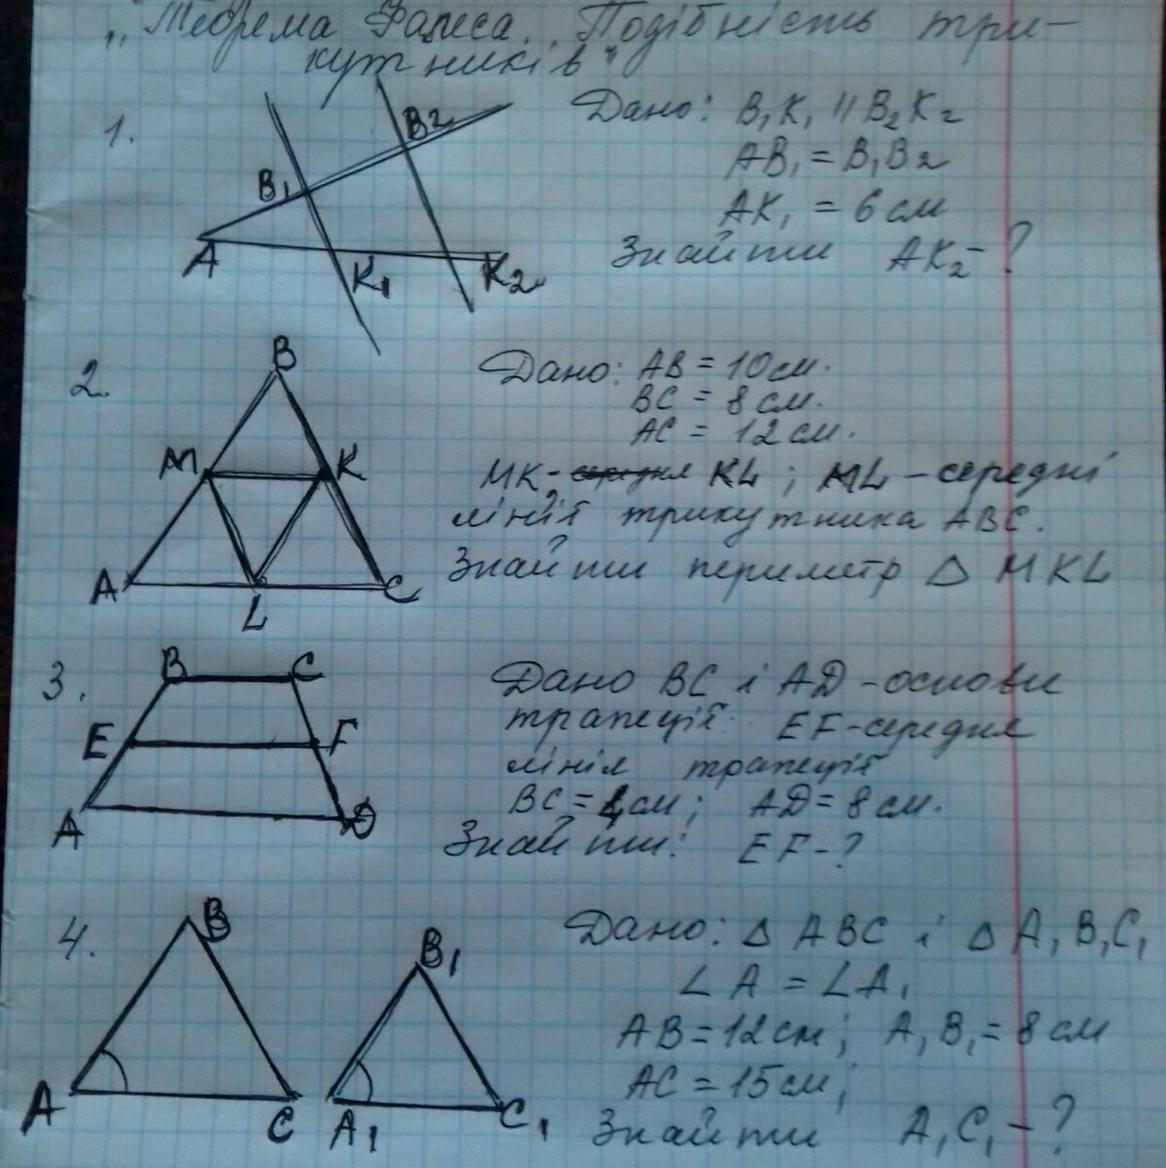 „Теорема Фалеса. Подібність три-
кутників"
1.
Дано: B₁K₁ || B₂K₂
AB₁ = B₁B₂
AK₁ = 6 см
Знайти AK₂ - ?
B₂
B₁
A
K₁
K₂
2.
Дано: AB = 10 см.
BC = 8 см.
AC = 12 см.
MK, KL; ML - середні
лінії трикутника ABC.
Знайти периметр Δ MKL
B
M
K
A
L
C
3.
Дано BC і AD - основи
трапеції. EF - середня
лінія трапеції
BC = 4 см; AD = 8 см.
Знайти: EF - ?
B
C
E
F
A
D
4.
Дано: Δ ABC і Δ A₁B₁C₁
∠A = ∠A₁
AB = 12 см; A₁B₁ = 8 см
AC = 15 см;
Знайти A₁C₁ - ?
B
B₁
A
C
A₁
C₁